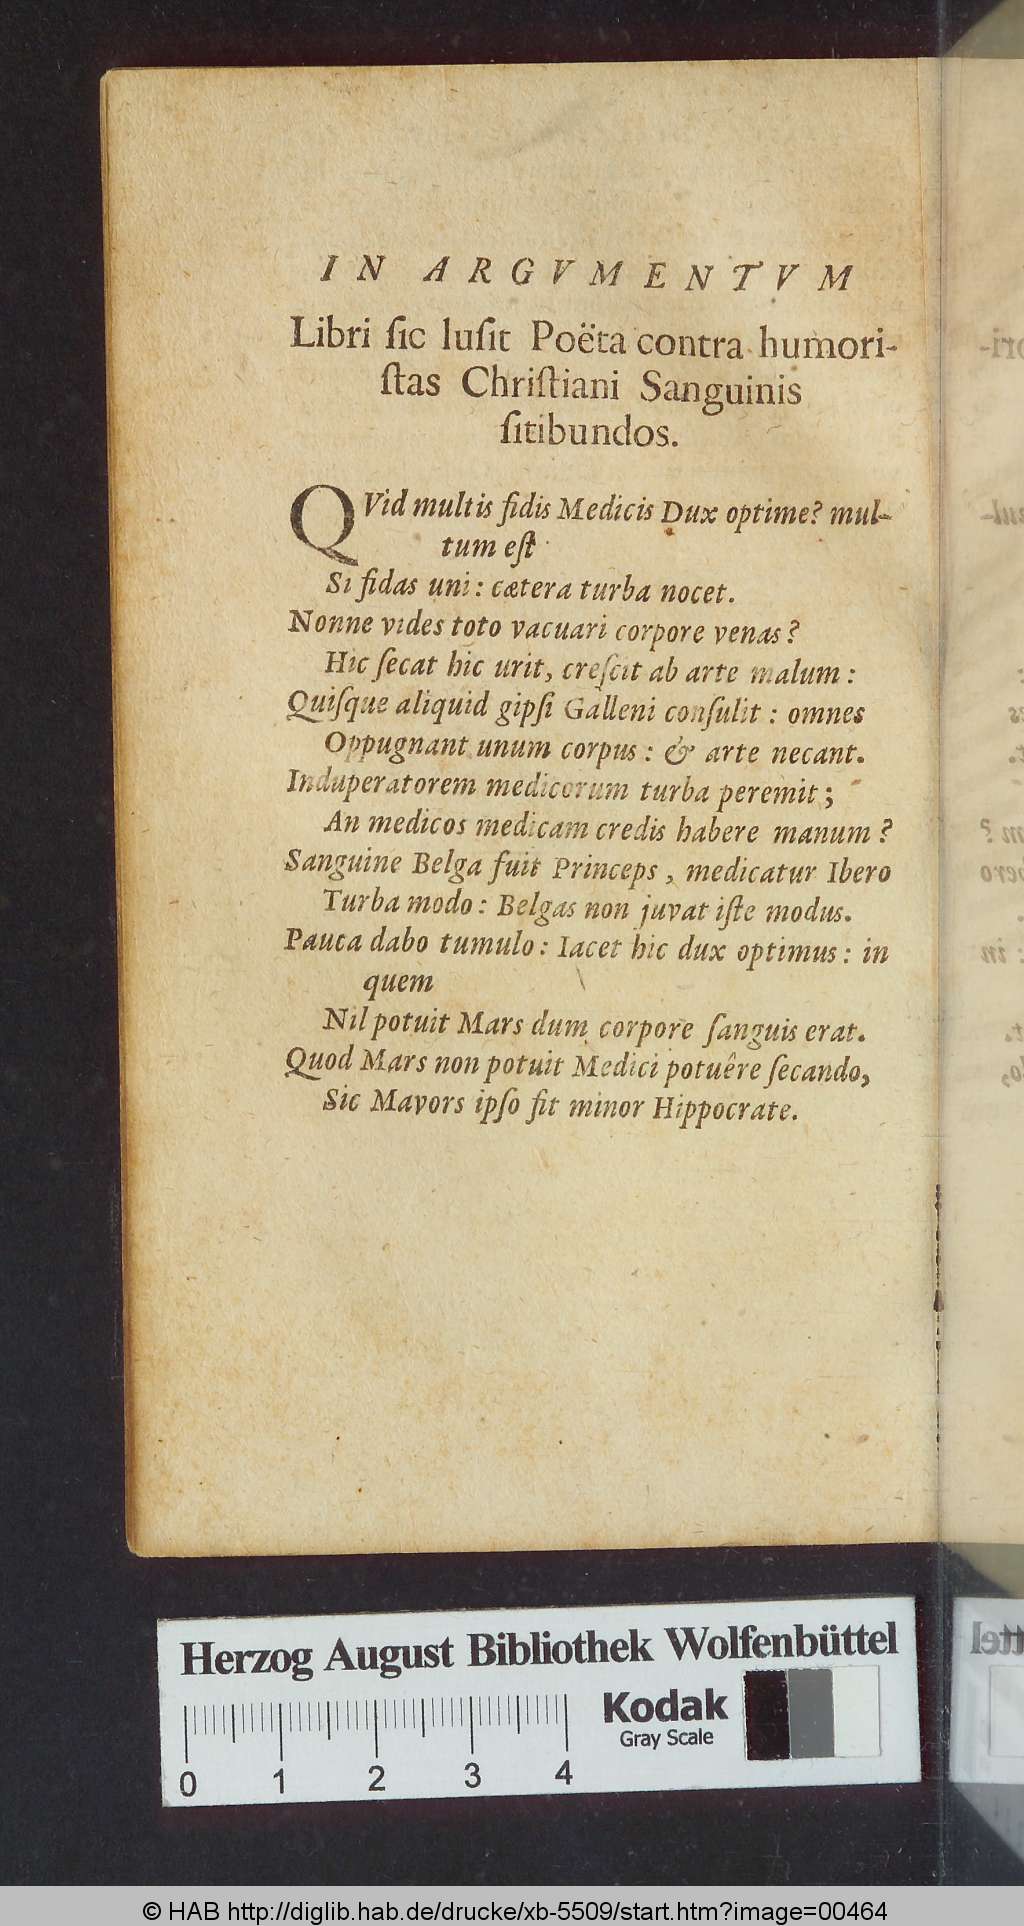 IN ARGVMENTVM
Libri ſic luſit Poëta contra humori-
ſtas Chriſtiani Sanguinis
ſitibundos.
QVid multis fidis Medicis Dux optime? mul-
tum eſt
Si fidas uni: cætera turba nocet.
Nonne vides toto vacuari corpore venas?
Hic ſecat hic urit, creſcit ab arte malum:
Quiſque aliquid gipſi Galleni conſulit: omnes
Oppugnant unum corpus: & arte necant.
Induperatorem medicorum turba peremit;
An medicos medicam credis habere manum?
Sanguine Belga fuit Princeps, medicatur Ibero
Turba modo: Belgas non juvat iſte modus.
Pauca dabo tumulo: Iacet hic dux optimus: in
quem
Nil potuit Mars dum corpore ſanguis erat.
Quod Mars non potuit Medici potuêre ſecando,
Sic Mavors ipſo fit minor Hippocrate.
Herzog August Bibliothek Wolfenbüttel
Kodak
Gray Scale
0 1 2 3 4
© HAB http://diglib.hab.de/drucke/xb-5509/start.htm?image=00464